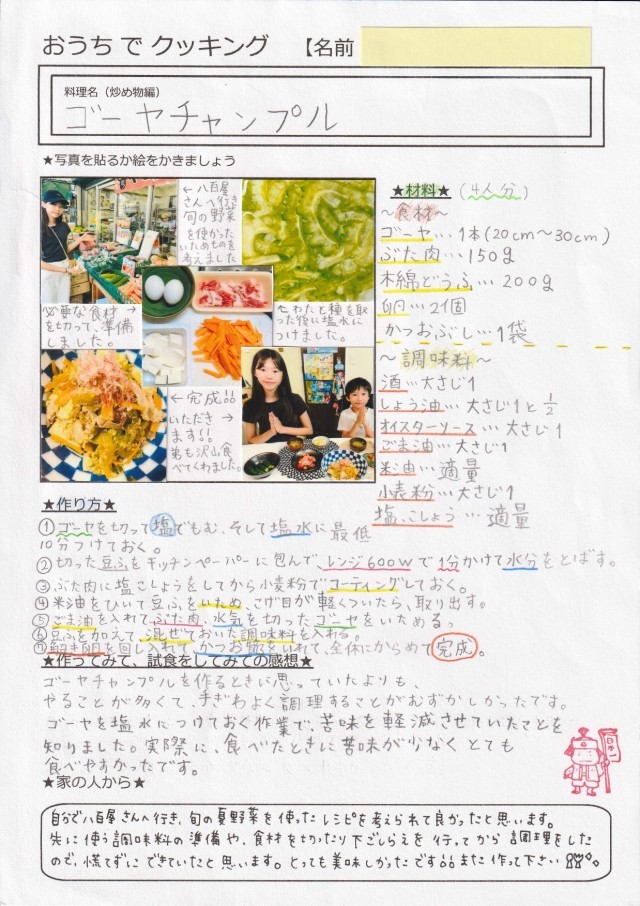 おうちで クッキング 【名前
料理名（炒め物編）
ゴーヤチャンプル
★写真を貼るか絵をかきましょう
←八百屋
さんへ行き
旬の野菜
を使かった
いためものを
考えました
必要な食材→
を切って、準備
しました。
←わたと種を取
った後に塩水に
つけました。
←完成!!
いただき→
ます!!
弟も沢山食
べてくれました。
★材料★（4人分）
～食材～
ゴーヤ…1本(20cm～30cm)
ぶた肉…150g
木綿どうふ…200g
卵…2個
かつおぶし…1袋
～調味料～
酒…大さじ1
しょう油…大さじ1と1/2
オイスターソース…大さじ1
ごま油…大さじ1
米油…適量
小麦粉…大さじ1
塩、こしょう…適量
★作り方★
①ゴーヤを切って塩でもむ、そして塩水に最低
10分つけておく。
②切った豆ふをキッチンペーパーに包んで、レンジ600Wで1分かけて水分をとばす。
③ぶた肉に塩こしょうをしてから小麦粉でコーティングしておく。
④米油をひいて豆ふをいため、こげ目が軽くついたら、取り出す。
⑤ごま油を入れてぶた肉、水気を切ったゴーヤをいためる。
⑥豆ふを加えて、混ぜておいた調味料を入れる。
⑦解き卵を回し入れて、かつお節をいれて、全体にからめて完成。
★作ってみて、試食をしてみての感想★
ゴーヤチャンプルを作るときに思っていたよりも、
やることが多くて、手ぎわよく調理することがむずかしかったです。
ゴーヤを塩水につけておく作業で、苦味を軽減させていたことを
知りました。実際に、食べたときに苦味が少なくとても
食べやすかったです。
★家の人から★
自分で八百屋さんへ行き、旬の夏野菜を使ったレシピを考えられて良かったと思います。
先に使う調味料の準備や、食材を切ったり下ごしらえを行ってから調理をした
ので、慌てずにできていたと思います。とっても美味しかったです!!また作って下さい